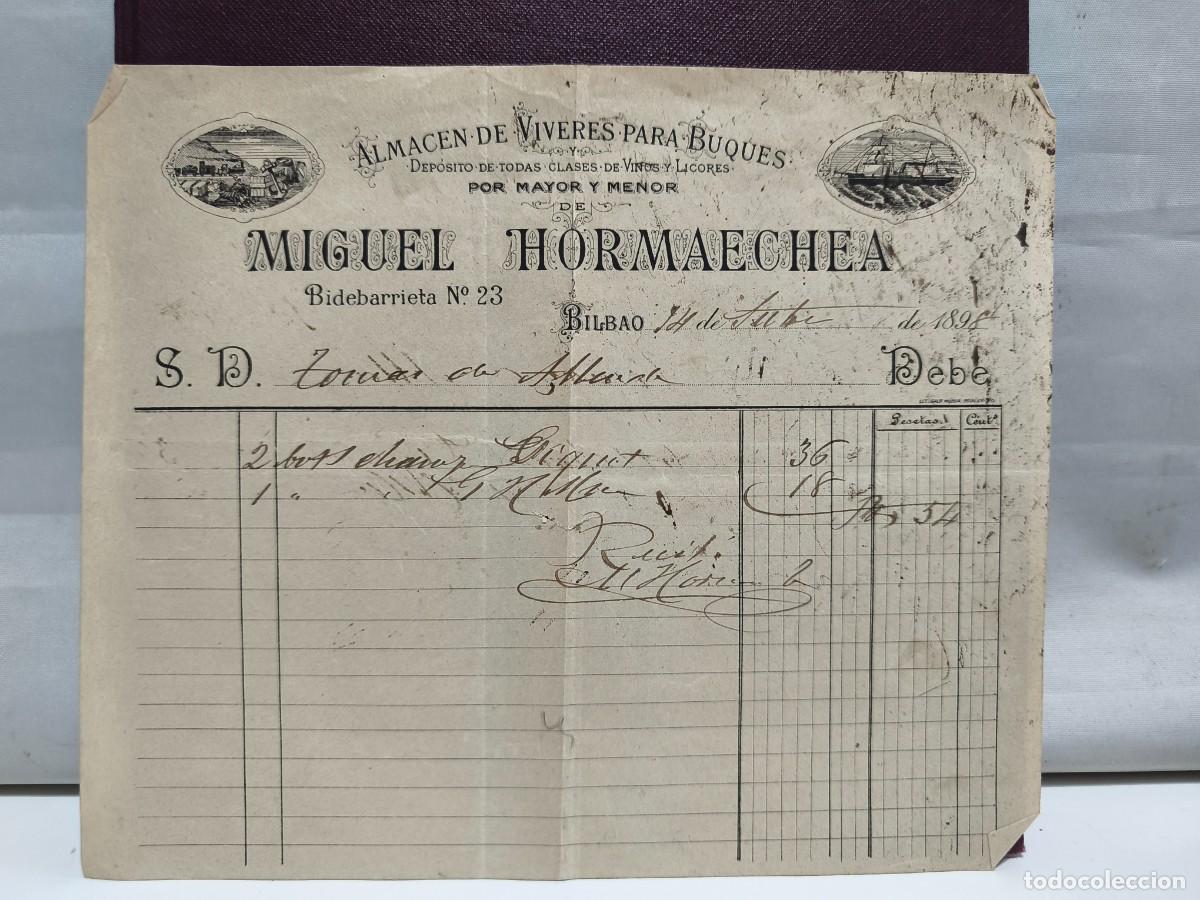 ALMACEN · DE · VIVERES · PARA · BUQUES
Y
DEPÓSITO · DE · TODAS CLASES · DE · VINOS · Y · LICORES ·
POR MAYOR Y MENOR
DE
MIGUEL HORMAECHEA
Bidebarrieta Nº 23
BILBAO 14 de de 1898
S. D. Tomas de Debe
Pesetas. Cent.s
2 bots champ 36
1 " 18
Pts 54
Recibí
M Horm
todocoleccion